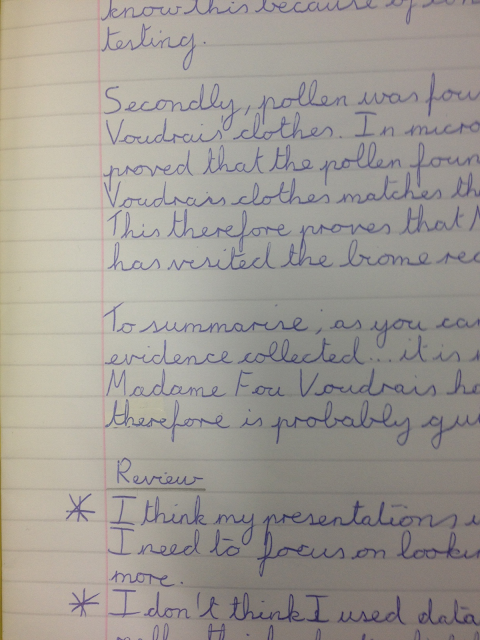 know this because of
testing.
Secondly, pollen was fou
Voudrais' clothes. In micro
proved that the pollen foun
Voudrais clothes matches th
This therefore proves that M
has visited the brome rec
To summarise, as you can
evidence collected... it is
Madame Fou Voudrais ha
therefore is probably gui
Review
* I think my presentations
I need to focus on lookin
more.
* I don't think I used data